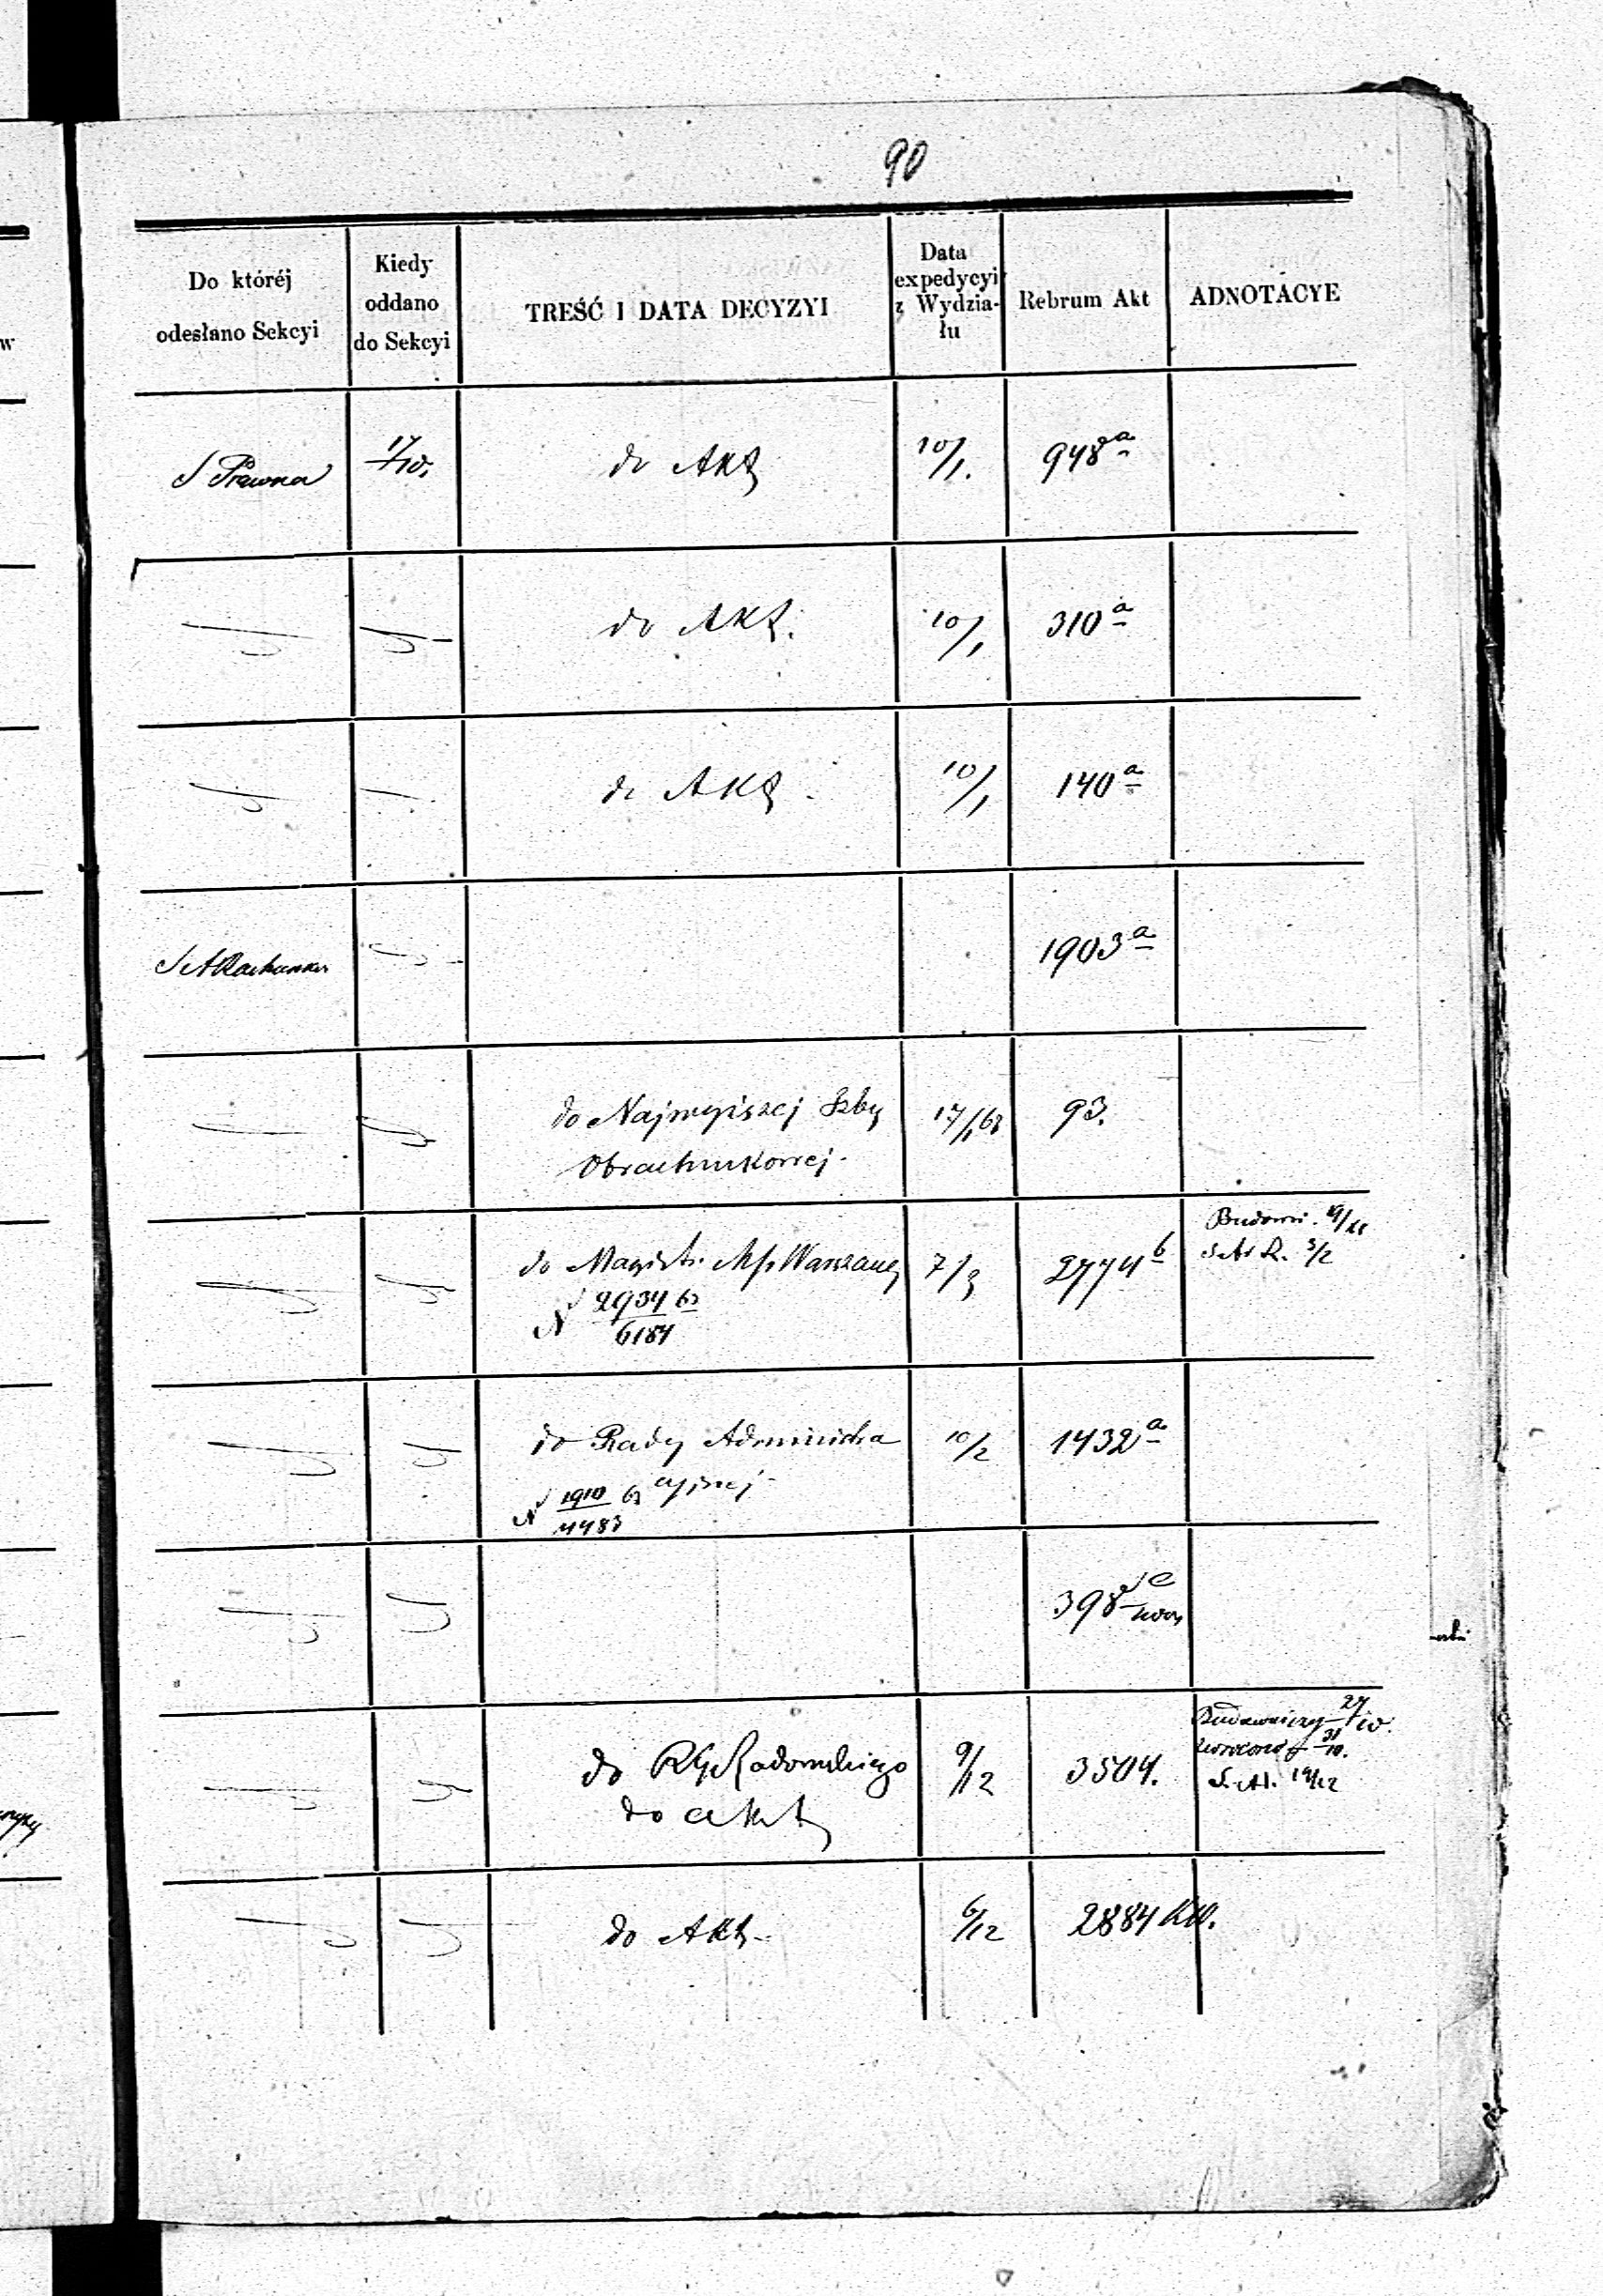 90
Do któréj
odesłano Sekcyi
Kiedy
oddano
do Sekcyi
TREŚĆ I DATA DECYZYI
Data
expedycyi
z Wydzia-
łu
Rebrum Akt
ADNOTACYE
S Prawna
17/10.
do Akt
10/1.
948 a
do Akt.
10/1
310 a
do Akt
10/1
140 a
1903 a
do Najwyiszej Izby
Obrachunkowej.
17/1 63
93.
do Magistr. M. Warszawy
N 2934 63
6184
7/3
2774 b
3/2
do Rady Administra
cyjnej
N 1910 63
4483
10/2
1432 a
398
do RG Radomskiego
do akt
9/12
3504.
Budowniczy 27/10.
31/10.
19/12
do Akt
6/12
2884 KW.